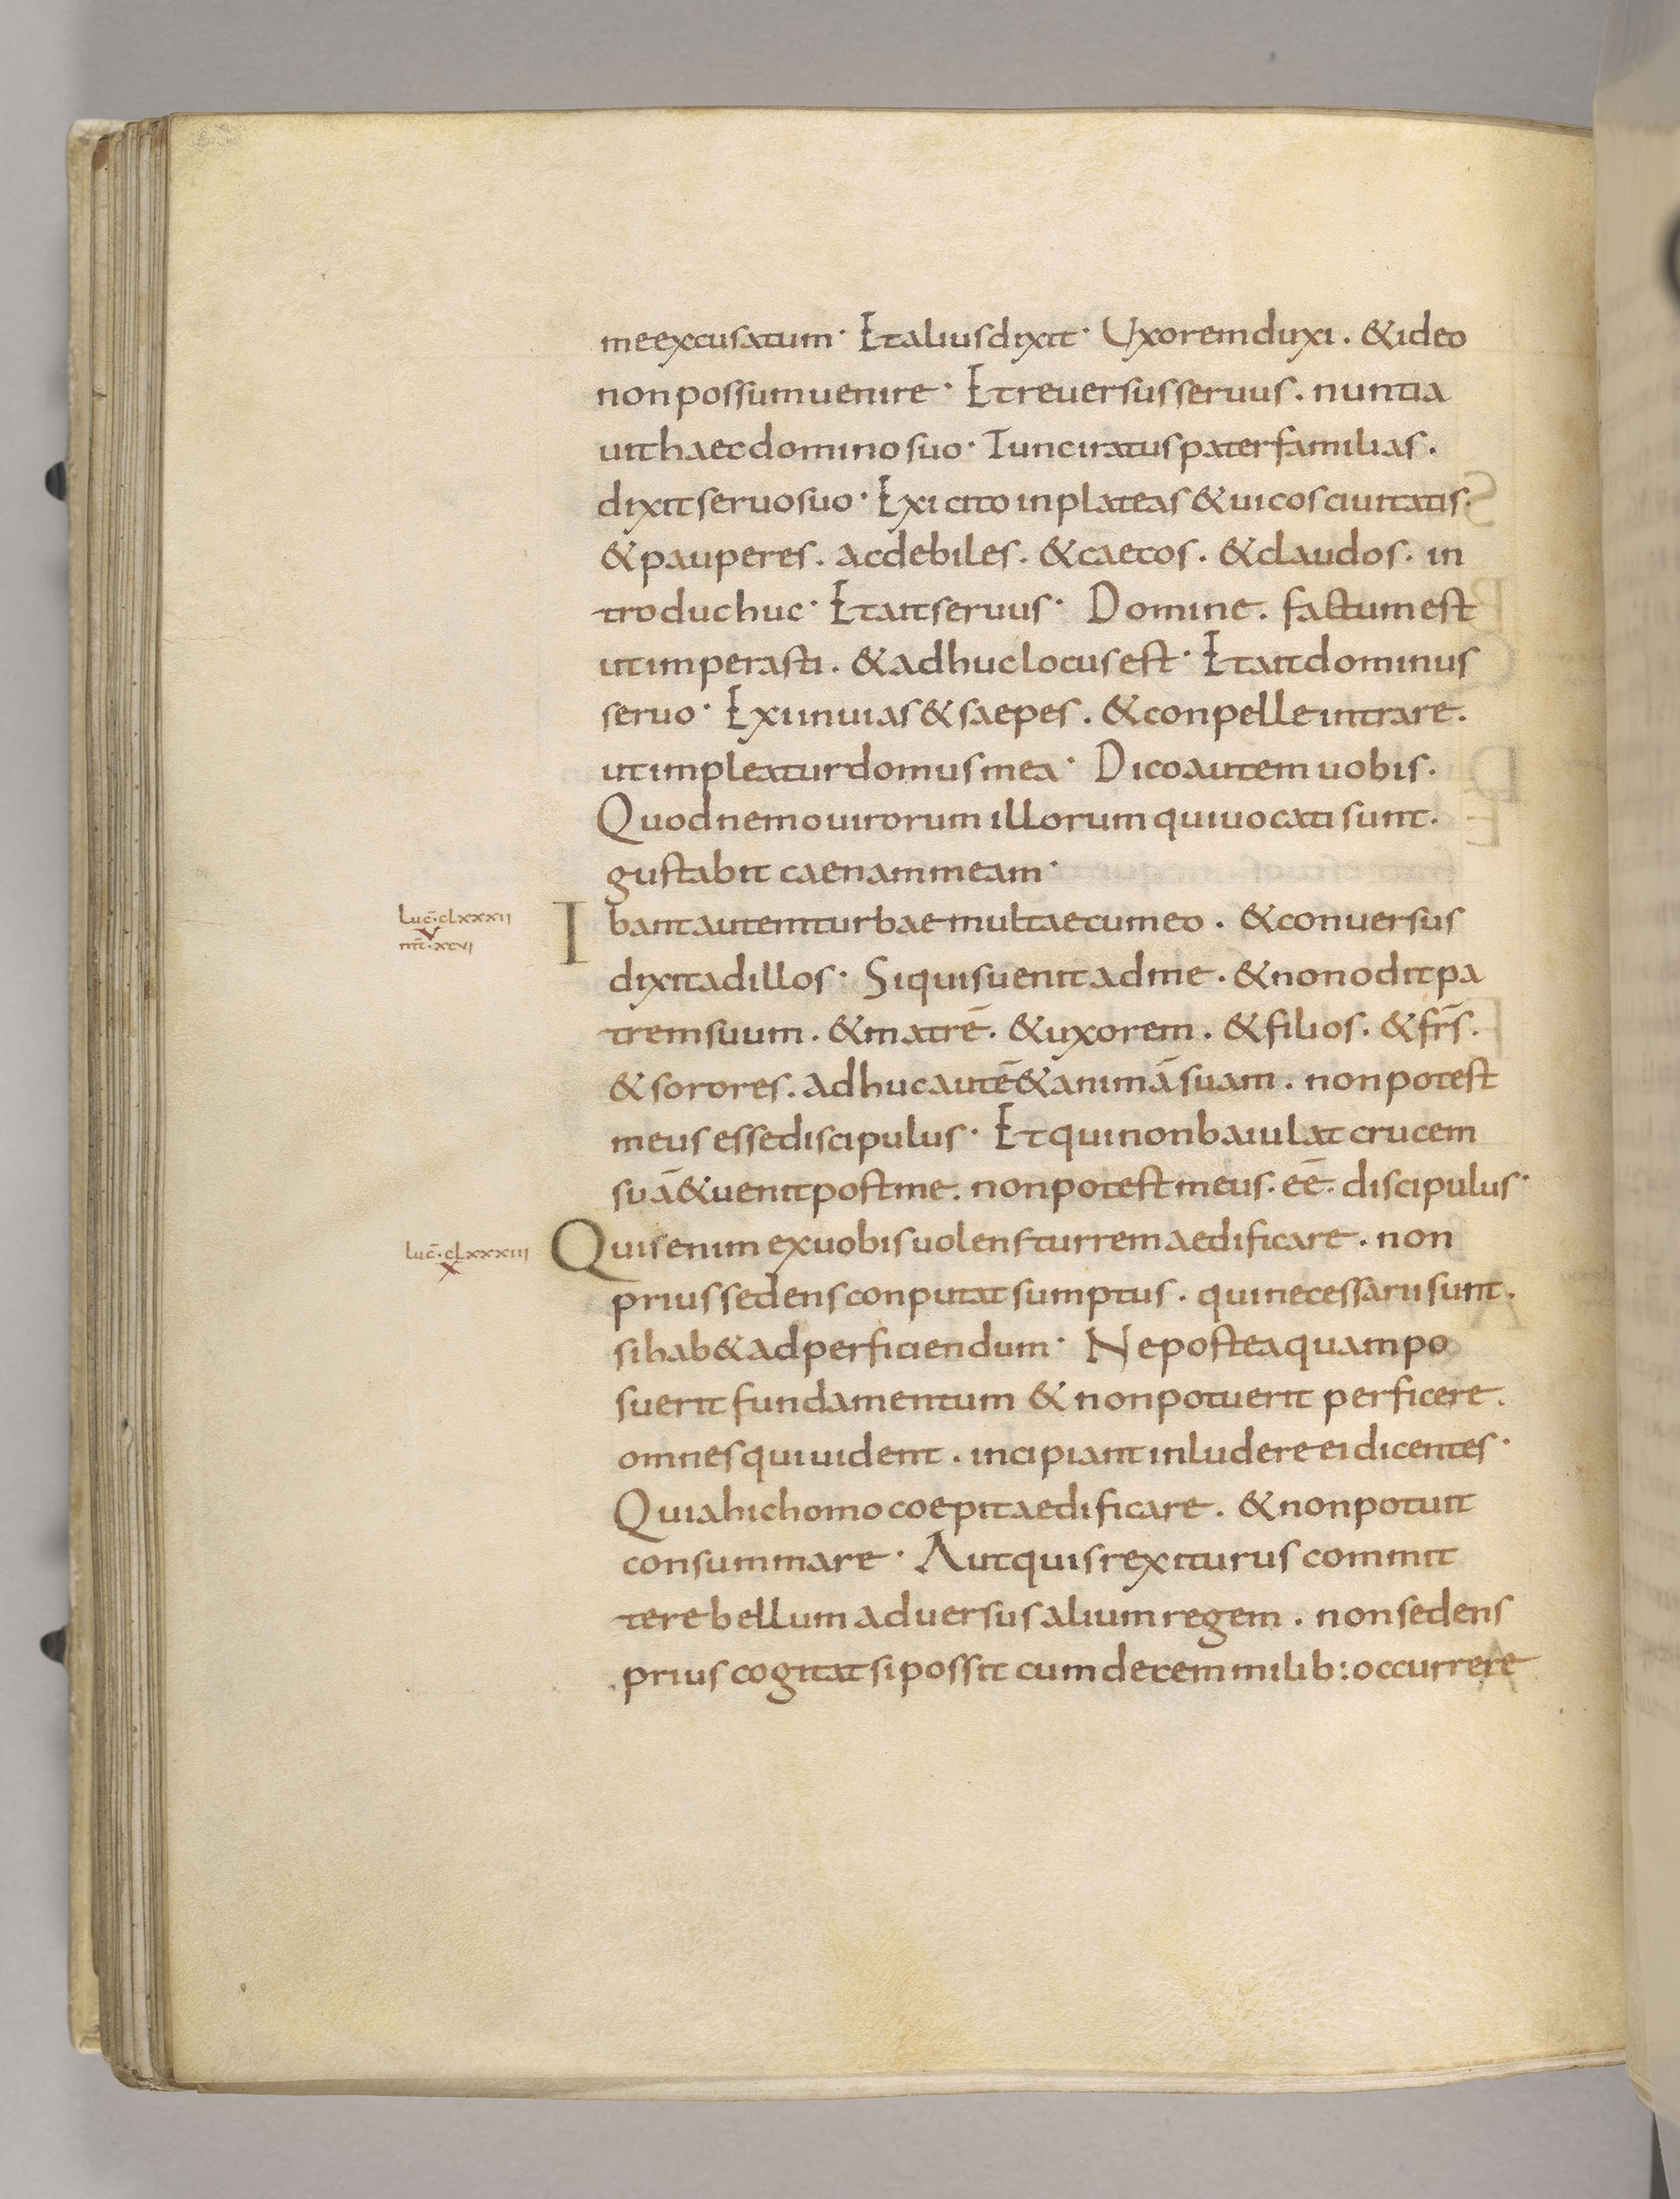 me excusatum· Et alius dixit· Uxorem duxi. & ideo
non possum uenire· Et reuersus seruus. nuntia
uit haec domino suo· Tunc iratus pater familias.
dixit seruo suo· Exi cito in plateas & uicos ciuitatis.
& pauperes. ac debiles. & caecos. & claudos. in
troduc huc· Et ait seruus· Domine. factum est
ut imperasti. & adhuc locus est· Et ait dominus
seruo· Exi in uias & saepes. & conpelle intrare.
ut impleatur domus mea· Dico autem uobis.
Quod nemo uirorum illorum qui uocati sunt.
gustabit caenam meam·
Luc̄·clxxxii
v
mt̄·xcvi
Ibant autem turbae multae cum eo. & conuersus
dixit ad illos· Si quis uenit ad me. & non odit pa
trem suum. & matrē. & uxorem. & filios. & fr̄s.
& sorores. adhuc autē & animā suam. non potest
meus esse discipulus· Et qui non baiulat crucem
suā & uenit post me. non potest meus. eē. discipulus·
Luc̄·clxxxiii
x
Quis enim ex uobis uolens turrem aedificare. non
prius sedens conputat sumptus. qui necessarii sunt.
si hab& ad perficiendum· Ne postea quam po
suerit fundamentum & non potuerit perficere.
omnes qui uident. incipiant inludere ei dicentes·
Quia hic homo coepit aedificare. & non potuit
consummare· Aut quis rex iturus commit
tere bellum aduersus alium regem. non sedens
prius cogitat si possit cum decem milib: occurrere